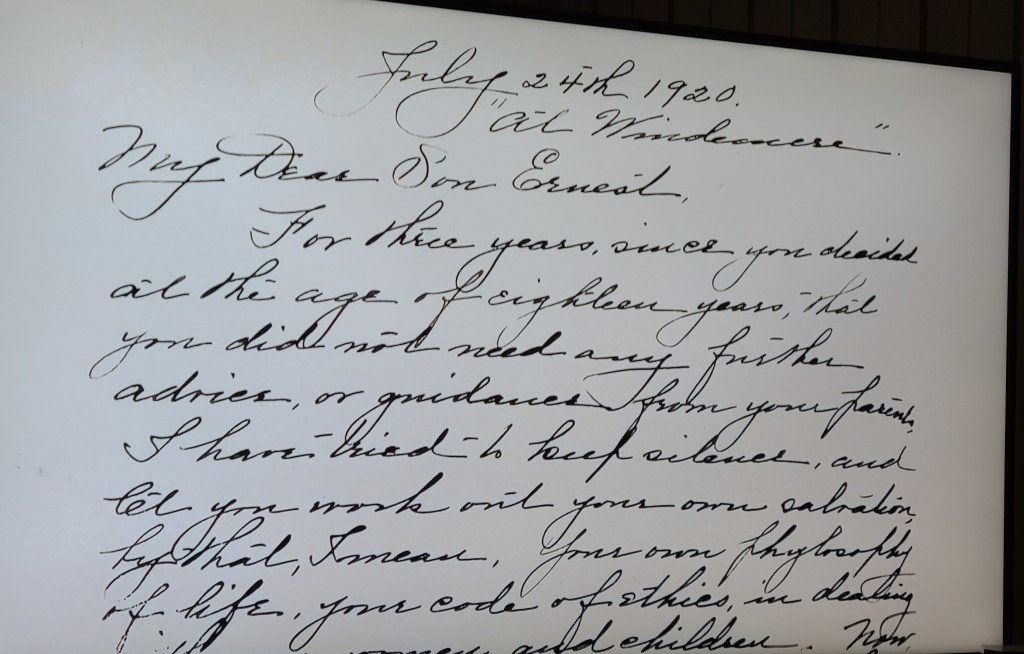 July 24th 1920.
"At Windemere".
My Dear Son Ernest,
For three years, since you decided
at the age of eighteen years, that
you did not need any further
advice, or guidance from your parents,
I have tried to keep silence, and
let you work out your own salvation,
by that, I mean, your own phylosophy
of life, your code of ethics, in dealing
women and children. Now,